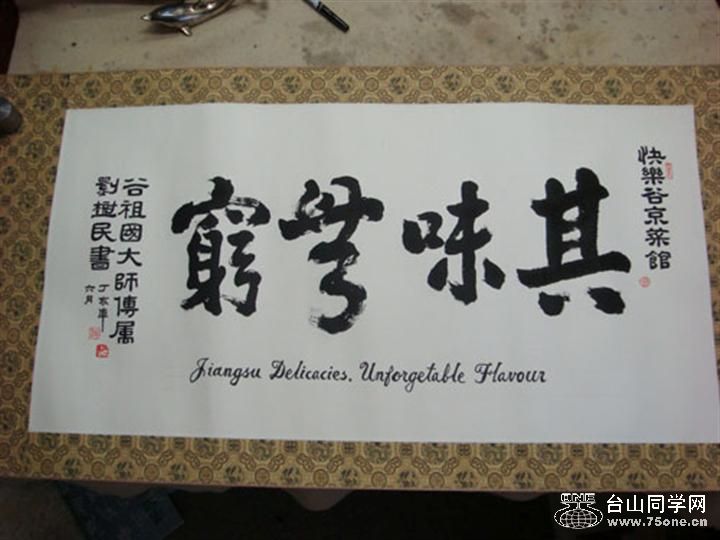 快樂谷京菜館
其味無窮
谷祖國大師傅属
劉樹民書
丁亥年
六月
Jiangsu Delicacies. Unforgetable Flavour
ONE
台山同学网
www.75one.cn